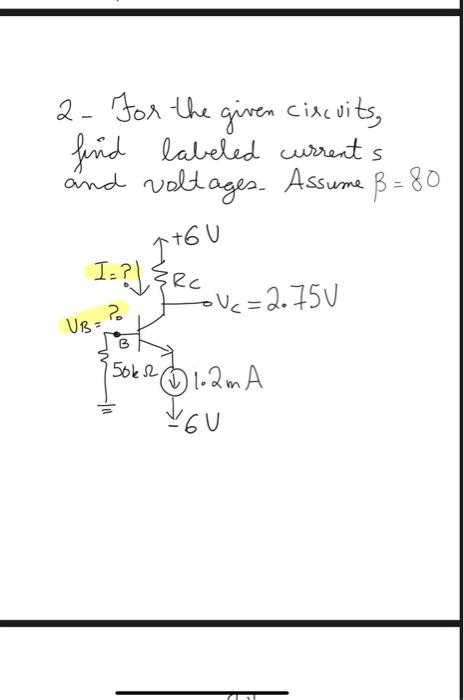 2 - For the given circuits,
find labeled currents
and voltages. Assume β = 80
+6V
I=?
RC
VC = 2.75V
VB = ?
B
50kΩ
1.2mA
-6V